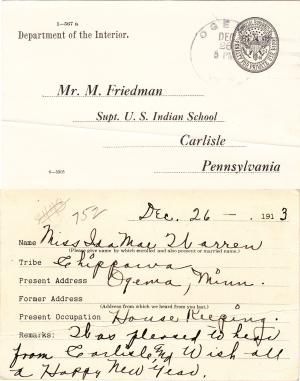 5-567 a
Department of the Interior.
OGE
DEC
Mr. M. Friedman
Supt. U. S. Indian School
Carlisle
Pennsylvania
752
Dec. 26 — . 1913
Name Miss Ida Mae Warren
(Please give name by which enrolled and also present or married name.)
Tribe Chippawa
Present Address Ogema, Minn.
Former Address
(Address from which we heard from you last.)
Present Occupation House Keeping.
Remarks: Was pleased to hear
from Carlisle, Wish all
a Happy New Year.